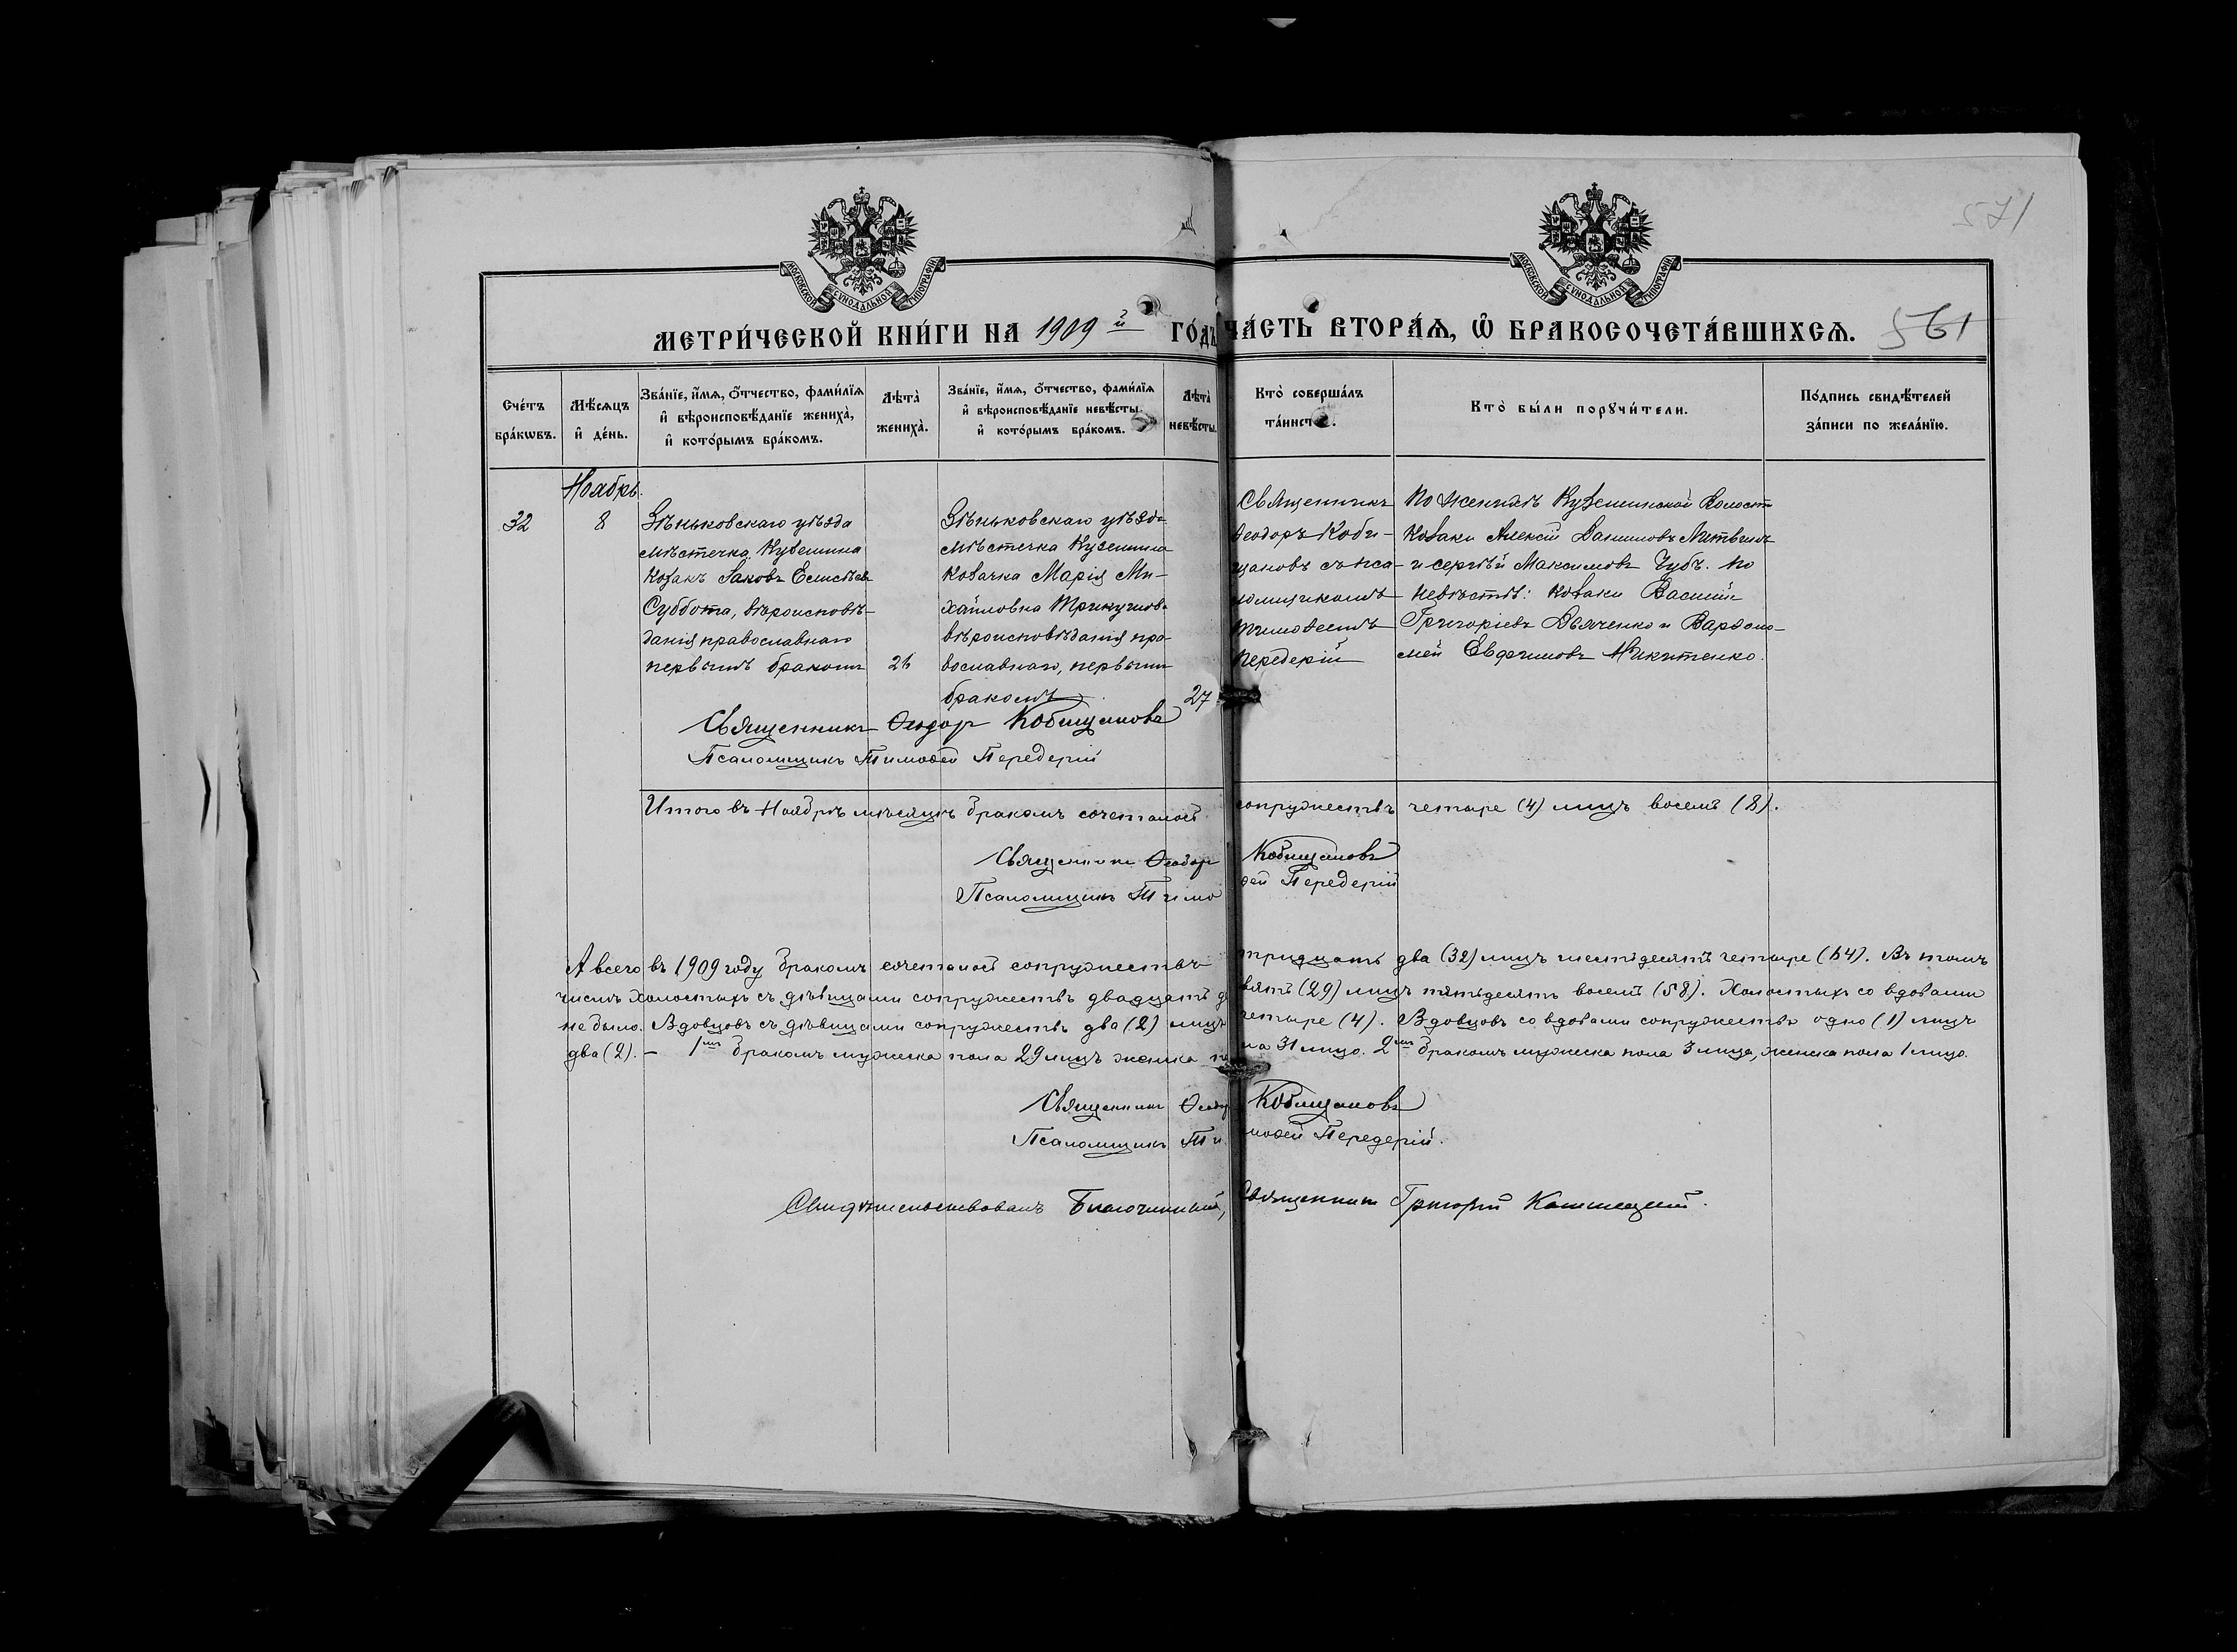 571
МОСКОВСКОЙ СѴНОДАЛЬНОЙ ТИПОГРАФІИ
МОСКОВСКОЙ СѴНОДАЛЬНОЙ ТИПОГРАФІИ
МЕТРИ́ЧЕСКОЙ КНИ́ГИ НА 1909 й ГО́ДЪ ЧА́СТЬ ВТОРА́Ѧ, Ѽ БРАКОСОЧЕТА́ВШИХСѦ. 561
Сче́тъ бра́кѡвъ.
Мѣ́сѧцъ и҆ де́нь.
Зва́нїе, и҆́мѧ, ѻ҆́тчество, фами́лїѧ
и҆ вѣроисповѣ́данїе жениха̀,
и҆ кото́рымъ бра́комъ.
Лѣта̀ жениха̀.
Зва́нїе, и҆́мѧ, ѻ҆́тчество, фами́лїѧ
и҆ вѣроисповѣ́данїе невѣ́сты.
и҆ кото́рымъ бра́комъ.
Лѣта̀ невѣ́сты.
Кто̀ соверша́лъ
та́инст
Кто̀ бы́ли порꙋчи́тели.
По́дпись свидѣ́телей
за́писи по жела́нїю.
Ноябрь.
32
8
Зѣньковскаго уѣзда
мѣстечка Куземина
козакъ Іаковъ Елисѣевъ
Суббота, вѣроисповѣ-
данія православнаго
первымъ бракомъ
26
Зѣньковскаго уѣзда
мѣстечка Куземина
козачка Марія Ми-
хайловна
вѣроисповѣданія пра-
вославнаго, первымъ
бракомъ
27
Священникъ
Ѳеодоръ Коби-
щановъ съ пса-
ломщикомъ
Тимоѳеемъ
Передерій
По женихѣ Куземинской волости
козаки Алексій Даниловъ Литвинъ
и Сергѣй Максимовъ Чубъ. По
невѣстѣ: козаки Василій
Григорьевъ Дьяченко и Варѳоло-
мей Евфимовъ Микитенко.
Священникъ Ѳеодоръ Кобищановъ
Псаломщикъ Тимоѳей Передерій
Итого въ Ноябрѣ мѣсяцѣ бракомъ сочеталось супружествъ четыре (4) лицъ восемь (8).
Священникъ Ѳеодоръ Кобищановъ
Псаломщикъ Тимоѳей Передерій
А всего въ 1909 году бракомъ сочеталось супружествъ тридцать два (32) лицъ шестьдесятъ четыре (64). Въ томъ
числѣ холостыхъ съ дѣвицами супружествъ двадцать девять (29) лицъ пятьдесятъ восемь (58). Холостыхъ со вдовами
не было. Вдовцовъ съ дѣвицами супружествъ два (2) лицъ четыре (4). Вдовцовъ со вдовами супружество одно (1) лицъ
два (2). – 1мъ бракомъ мужеска пола 29 лицъ женска пола 31 лицо. 2мъ бракомъ мужеска пола 3 лица, женска пола 1 лицо.
Священникъ Ѳеодоръ Кобищановъ
Псаломщикъ Тимоѳей Передерій.
Свидѣтельствовалъ Благочинный, Священникъ Григорій